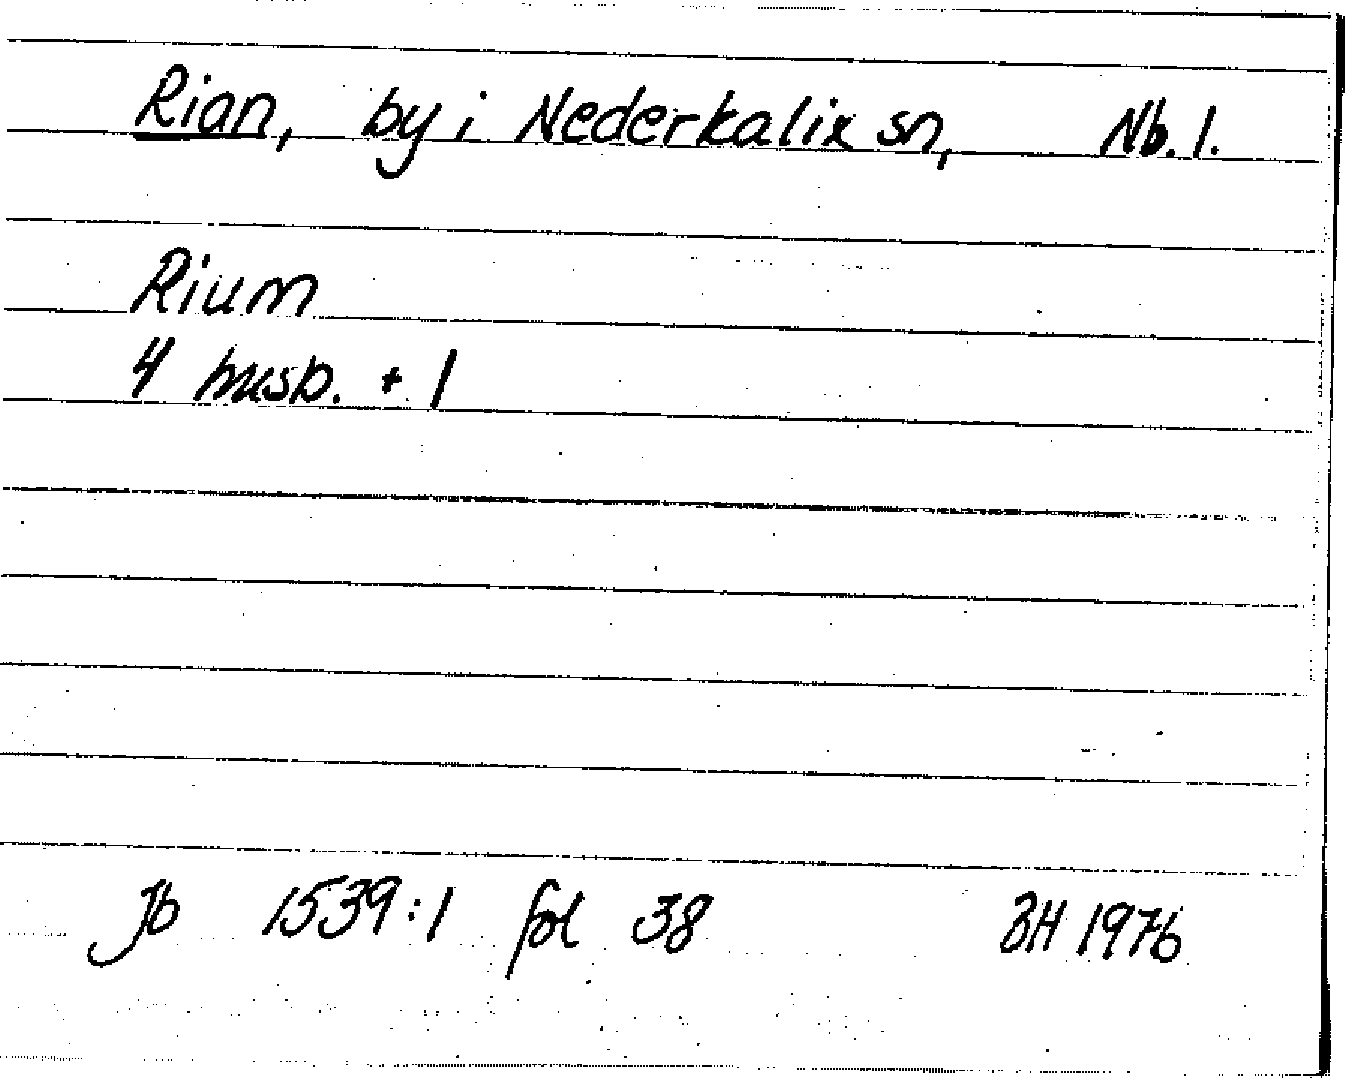 Rian, by i Nederkalix sn, Nb. l.
Rium
4 husb. + 1
Jb 1539:1 fol 38 BH 1976